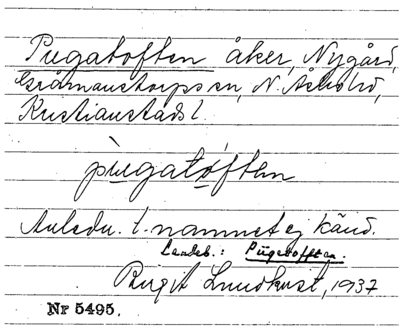 Pugatoften åker, Nygård,
Gråmanstorps sn, N. Åsbohd,
Kristianstads l.
pugatoften
Anledn. t. namnet ej känd.
Landsb.: Pugetofften.
Birgit Lundkvist, 1937
Nr 5495.